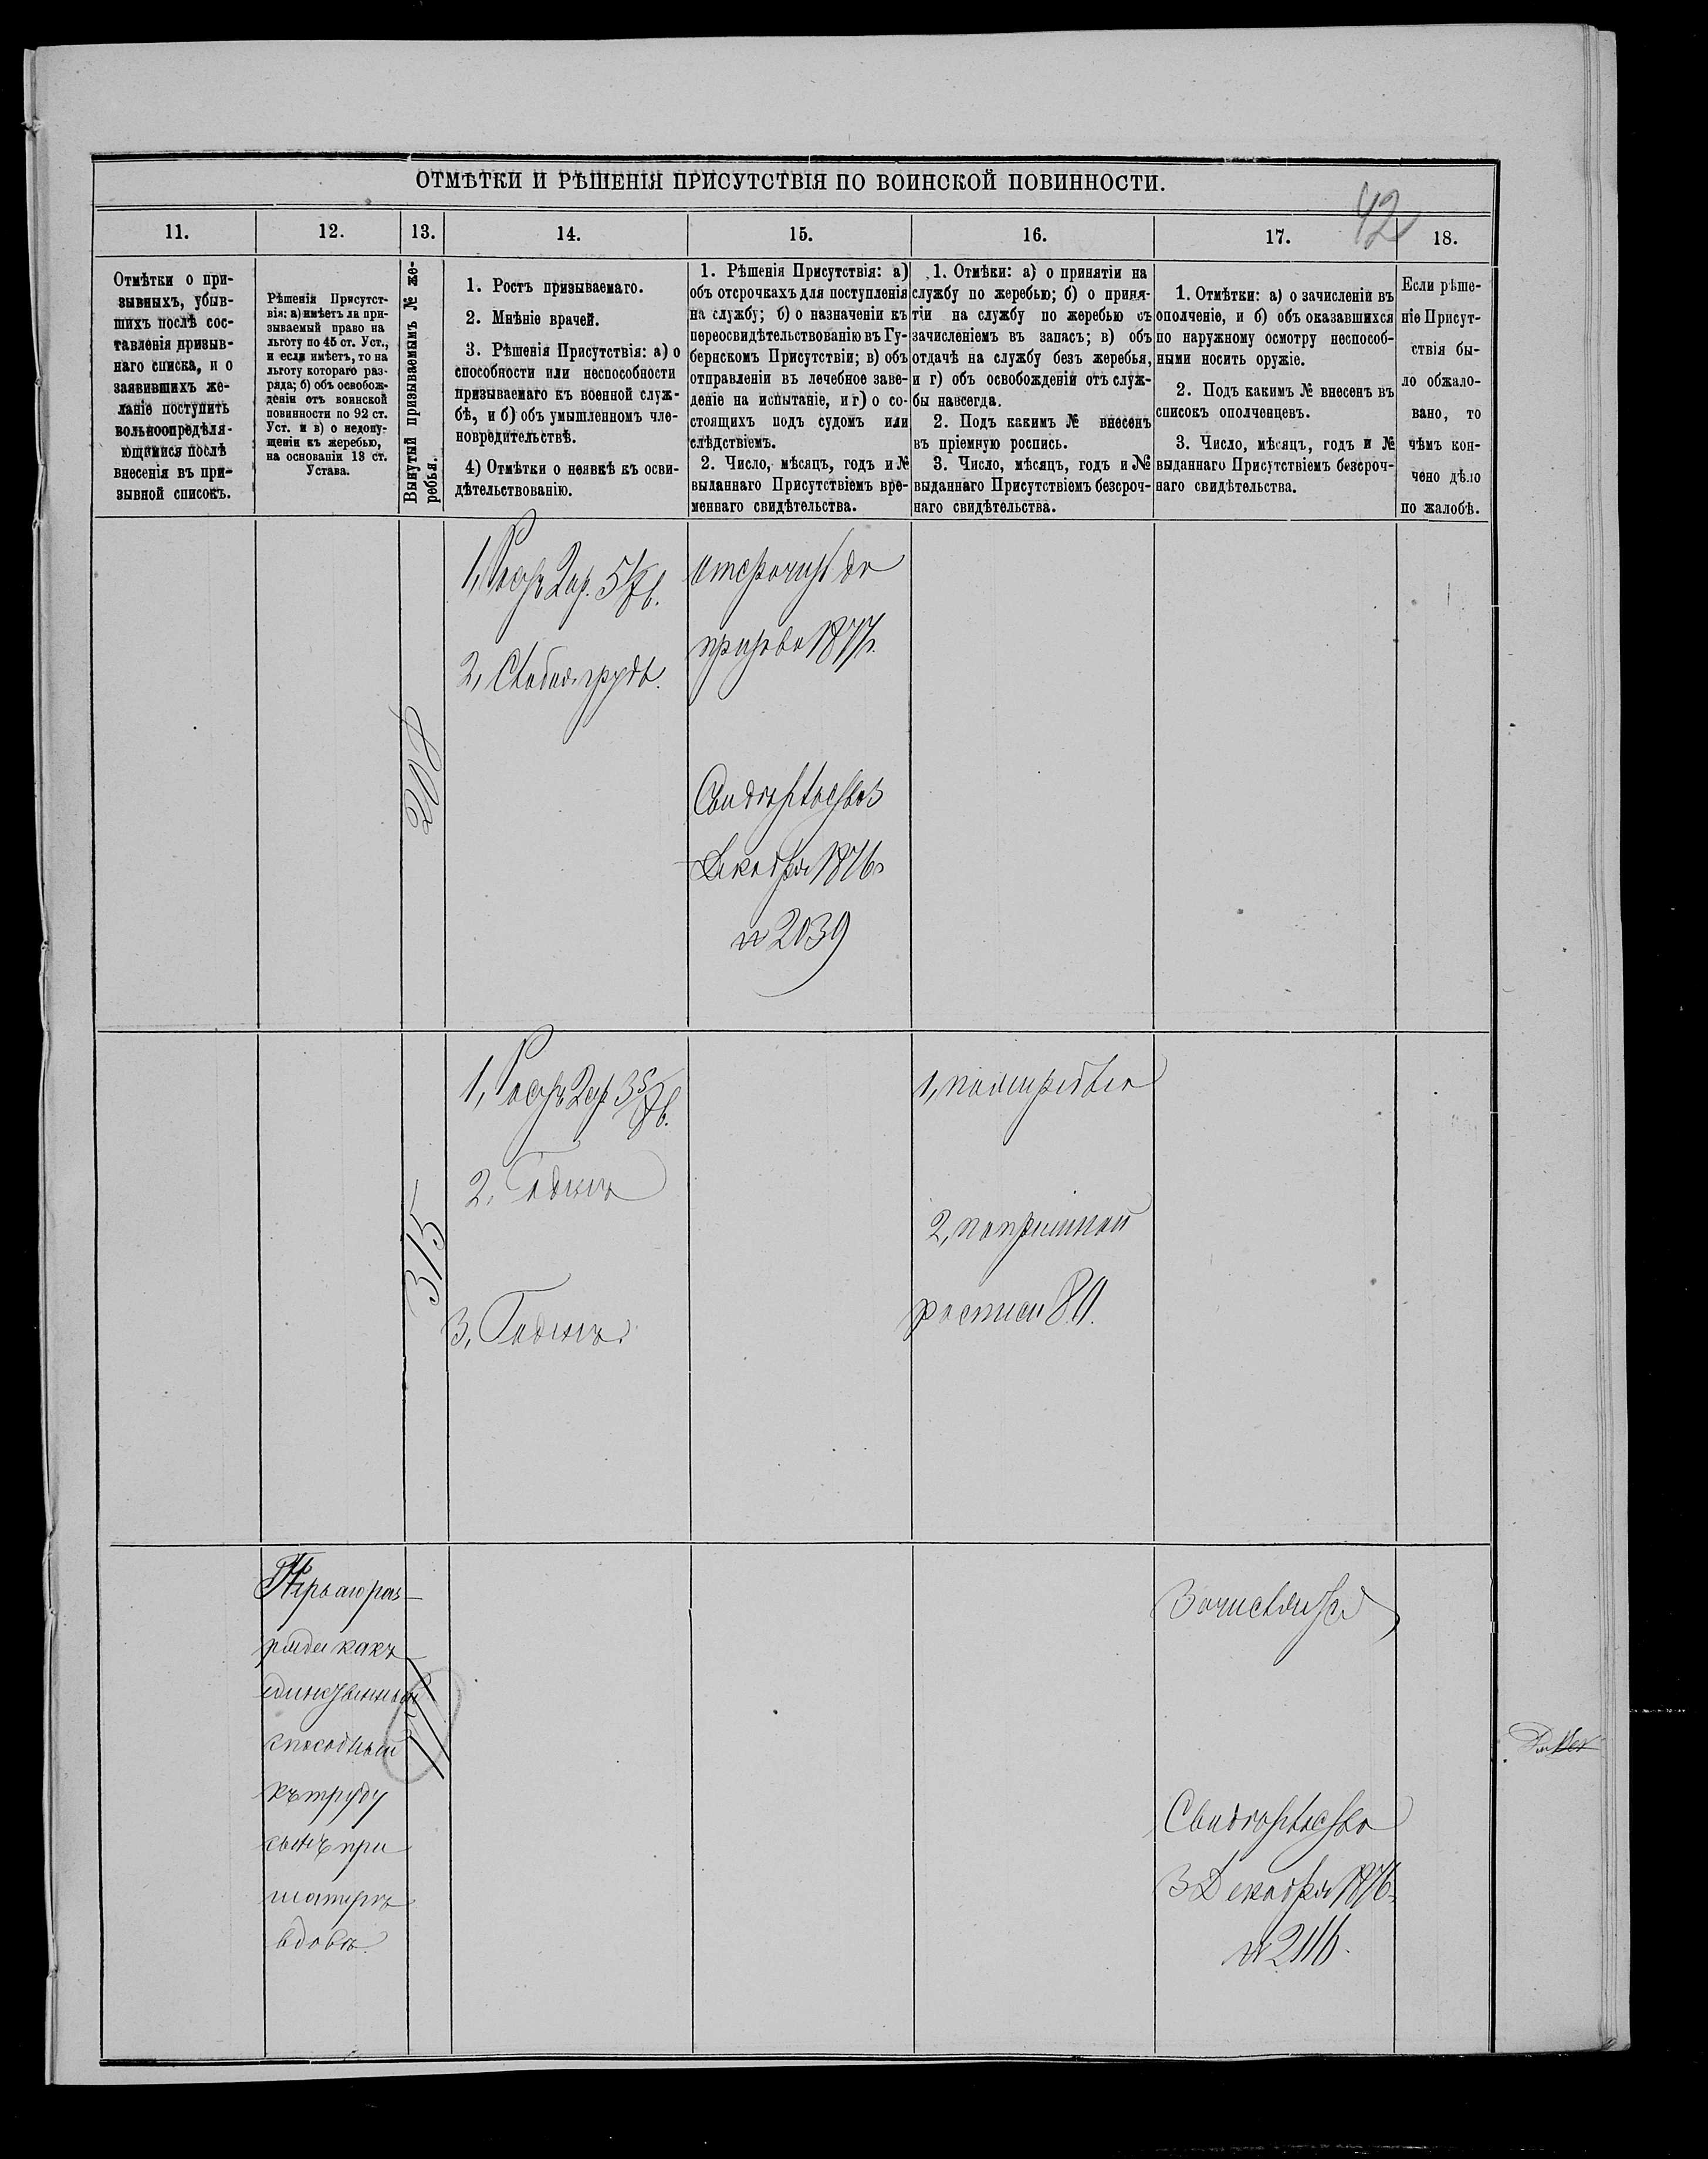 ОТМѢТКИ И РѢШЕНІЯ ПРИСУТСТВІЯ ПО ВОИНСКОЙ ПОВИННОСТИ.
42
11.
12.
13.
14.
15.
16.
17.
18.
Отмѣтки о при-
зывныхъ, убыв-
шихъ послѣ сос-
тавленія призыв-
наго списка, и о
заявившихъ же-
ланіе поступить
вольноопредѣля-
ющимися послѣ
внесенія въ при-
зывной списокъ.
Рѣшенія Присутст-
вія: а) имѣетъ ли при-
зываемый право на
льготу по 45 ст. Уст.,
и если имѣетъ, то на
льготу котораго раз-
ряда; б) объ освобож-
деніи отъ воинской
повинности по 92 ст.
Уст. и в) о недопу-
щеніи къ жеребью,
на основаніи 18 ст.
Устава.
Вынутый призываемымъ № же-
ребья.
1. Ростъ призываемаго.
2. Мнѣніе врачей.
3. Рѣшенія Присутствія: а) о
способности или неспособности
призываемаго къ военной служ-
бѣ, и б) объ умышленномъ чле-
новредительствѣ.
4) Отмѣтки о неявкѣ къ осви-
дѣтельствованію.
1. Рѣшенія Присутствія: а)
объ отсрочкахъ для поступленія
на службу; б) о назначеніи къ
переосвидѣтельствованію въ Гу-
бернскомъ Присутствіи; в) объ
отправленіи въ лечебное заве-
деніе на испытаніе, и г) о со-
стоящихъ подъ судомъ или
слѣдствіемъ.
2. Число, мѣсяцъ, годъ и №
выданнаго Присутствіемъ вре-
меннаго свидѣтельства.
1. Отмѣки: а) о принятіи на
службу по жеребью; б) о приня-
тіи на службу по жеребью съ
зачисленіемъ въ запасъ; в) объ
отдачѣ на службу безъ жеребья,
и г) объ освобожденіи отъ служ-
бы навсегда.
2. Подъ какимъ № внесенъ
въ пріемную роспись.
3. Число, мѣсяцъ, годъ и №
выданнаго Присутствіемъ безсроч-
наго свидѣтельства.
1. Отмѣтки: а) о зачисленіи въ
ополченіе, и б) объ оказавшихся
по наружному осмотру неспособ-
ными носить оружіе.
2. Подъ какимъ № внесенъ въ
списокъ ополченцевъ.
3. Число, мѣсяцъ, годъ и №
выданнаго Присутствіемъ безсроч-
наго свидѣтельства.
Если рѣше-
ніе Присут-
ствія бы-
ло обжало-
вано, то
чѣмъ кон-
чено дѣло
по жалобѣ.
208
1, Ростъ 2 ар. 5/8 в.
2, Слабая грудь.
отсрочить до
призыва 1877 г.
Свидѣтельство 3
Декабря 1876 г
№ 2039
315
1, Ростъ 2 ар 3 5/8 в.
2, Годенъ
3, Годенъ.
1, по жеребью
2, по приемной
росписи 80.
Перваго раз-
ряда какъ
единственный
способный
къ труду
сынъ при
матери
вдовѣ.
Зачислился
Свидѣтельство
3 Декабря 1876 г
№ 2116.